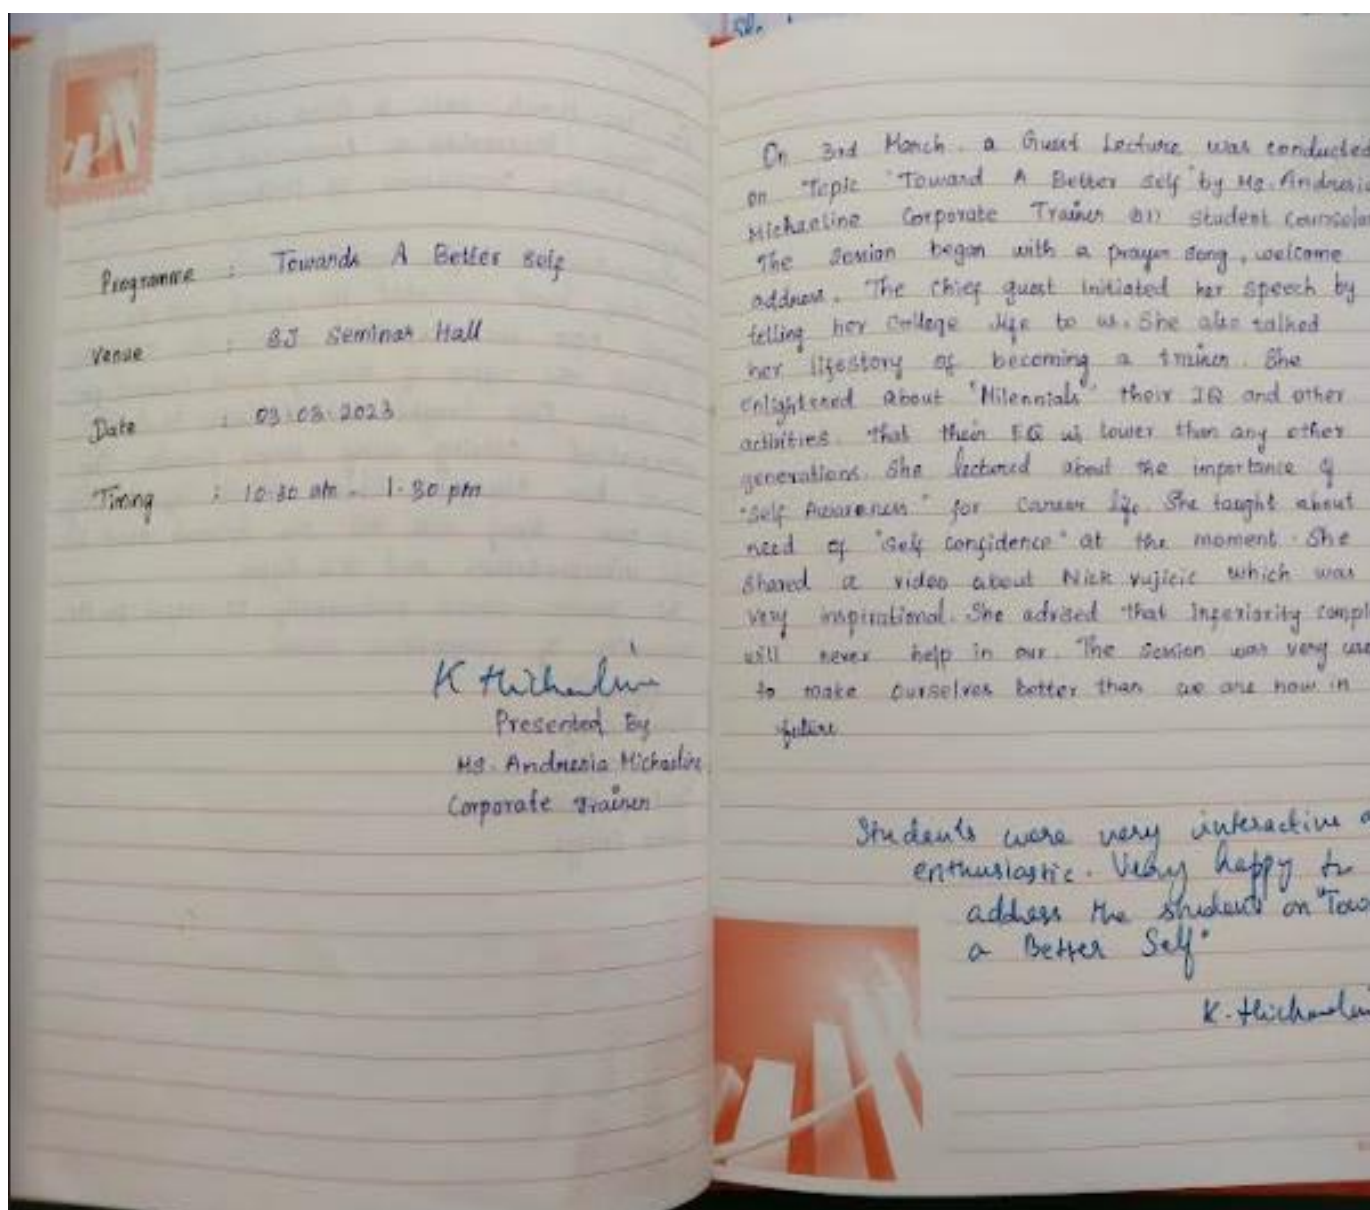 Programme : Towards A Better Self
Venue : SJ Seminar Hall
Date : 03.03.2023
Timing : 10.30 am - 1.30 pm
K Michaeline
Presented By
Ms. Andresia Michaeline
Corporate Trainer
On 3rd March a Guest Lecture was conducted
on Topic "Toward A Better self" by Ms. Andresia
Michaeline Corporate Trainer student Counselor
The Session began with a prayer song, welcome
address. The chief guest initiated her speech by
telling her College life to us. She also talked
her lifestory of becoming a trainer. She
enlightened about "Milennials" their IQ and other
activities that their EQ is lower than any other
generations. She lectured about the importance of
"Self Awareness" for Career life. She taught about
need of "self confidence" at the moment. She
shared a video about Nick vujicic which was
very inspirational. She advised that Inferiority compl
will never help in our. The Session was very use
to make ourselves better than we are now in
future
Students were very interactive a
enthusiastic. Very happy to
address the students on "Tow
a Better Self"
K. Michaelin